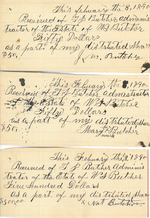 This February the 8, 1890
Received of T J Butler Adminis
trator of the Estate of W D Butler
Fifty Dollars
as a part of my distributed share
$50.
J. W. Butler
This February the 8, 1890
Received of T J Butler Administrator
of the Estate of W D Butler
Fifty Dollars
as a part of my distributed share
$50. Mary E Butler
This February the 8, 1890
Received of T J Butler Adminis
trator of the Estate of W D Butler
Five Hundred Dollars
as a part of my distributed share
$500. Nat Butler